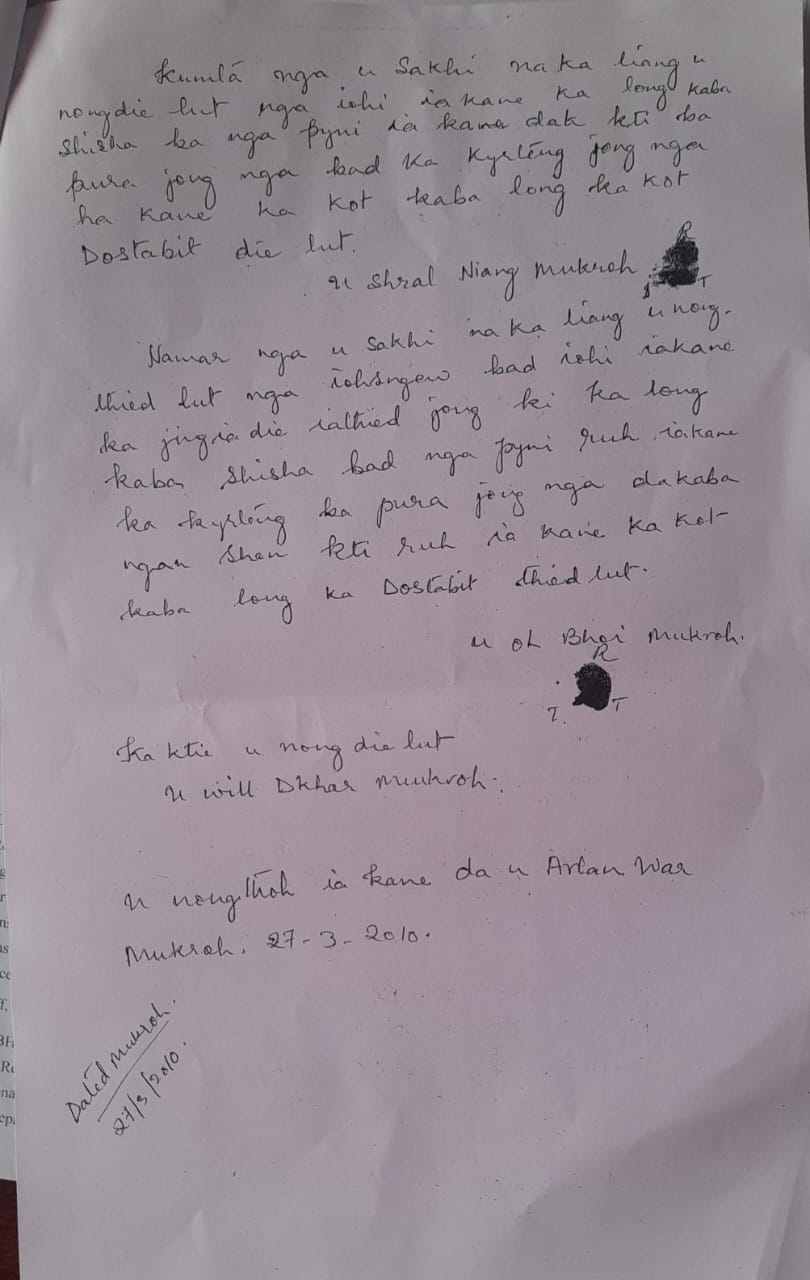 Kumlá nga u Sakhi na ka liang u
nongdie lut nga iohi ia kane ka long kaba
shisha ba nga pyni ia kane dak kti ba
pura jong nga bad ka Kyrtēng jong nga
ha kane ka kot kaba long ka kot
Dostabit die lut.
u Shral Niang Mukroh
R
T
Namar nga u sakhi na ka liang u nong-
thied lut nga iohsngew bad iohi iakane
ka jingia die iathied jong ki ka long
kaba shisha bad nga pyni ruh iakane
ka kyrtēng ba pura jong nga dakaba
ngan shon kti ruh ia kane ka kot
kaba long ka Dostabit thied lut.
u Oh Bhoi Mukroh.
R
I. T
Ka ktie u nong die lut
u Will Dkhar Mukroh.
u nongthoh ia kane da u Arlan War
Mukroh. 27-3-2010.
Dated Mukroh.
27/3/2010.